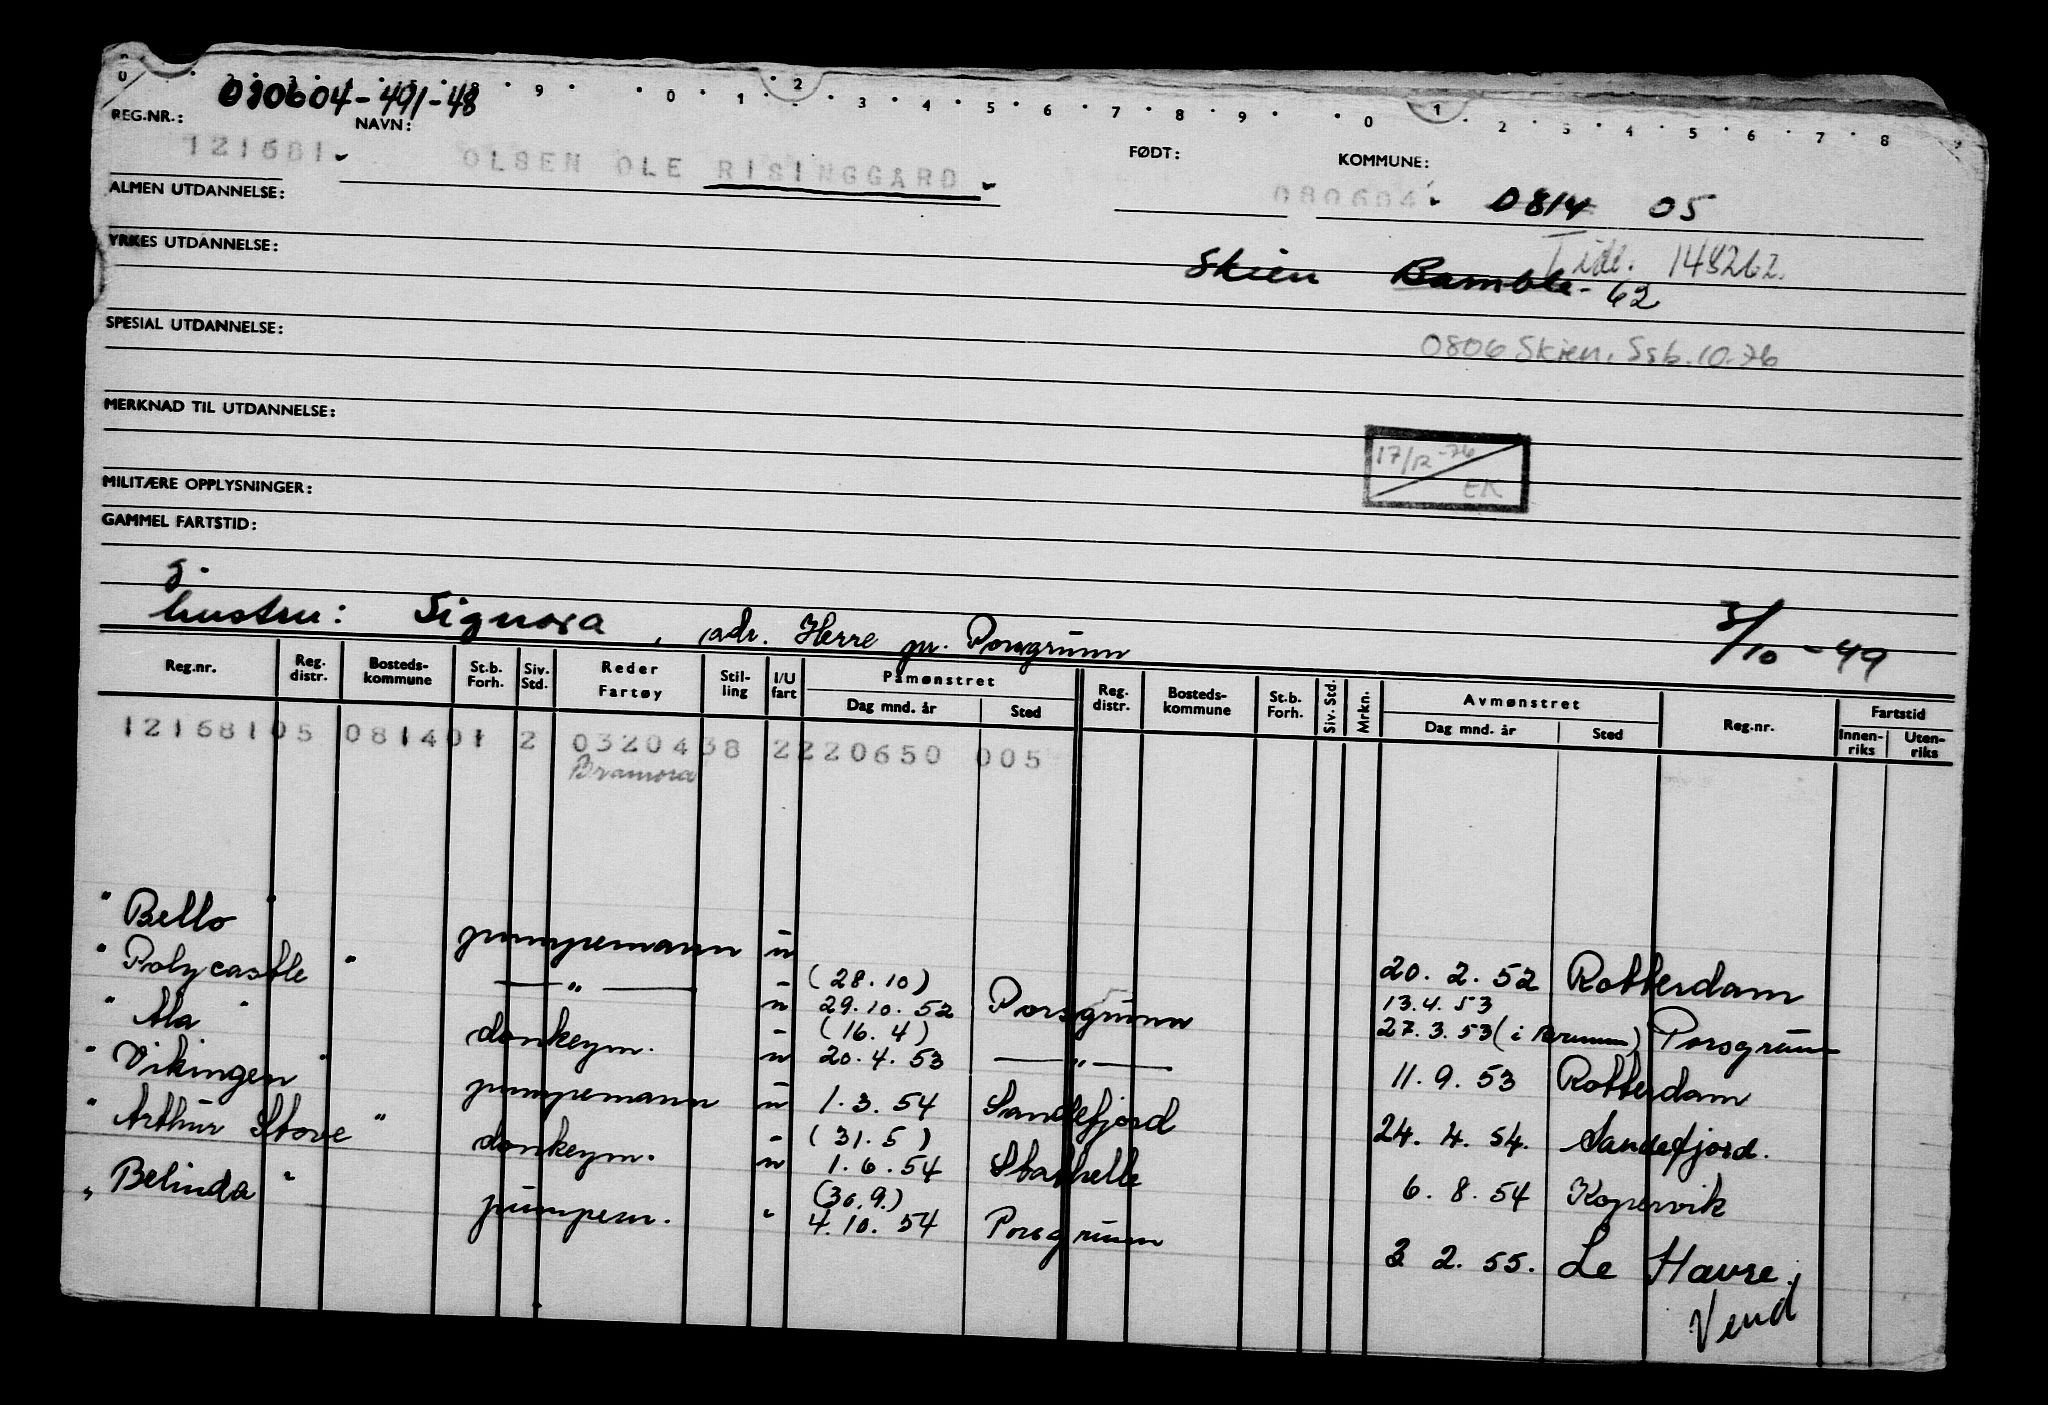 0 9 0 1 2 3 4 5 6 7 8 9 0 1 2 3 4 5 6 7 8 9
080604-491-48
REG.NR.: NAVN: FØDT: KOMMUNE:
121681 OLSEN OLE RISINGGARD 080604 0814 05
ALMEN UTDANNELSE:
Tidl. 148262.
YRKES UTDANNELSE: Skien Bamble - 62
SPESIAL UTDANNELSE: 0806 Skien, Ssb. 10.76
MERKNAD TIL UTDANNELSE:
17/12-76
EK
MILITÆRE OPPLYSNINGER:
GAMMEL FARTSTID:
g.
hustru: Signora, adr. Herre pr. Porsgrunn 3/10-49
Reg.nr. Reg. distr. Bosteds-kommune St.b. Forh. Siv. Std. Reder Fartøy Stil-ling I/U fart Påmønstret Dag mnd. år Sted Reg. distr. Bosteds-kommune St.b. Forh. Siv. Std. Mrkn. Avmønstret Dag mnd. år Sted Reg.nr. Fartstid Innen-riks Uten-riks
121681 05 0814 01 2 0320438 2 220650 005
Bramora
" Bello " pumpemann u 20. 2. 52 Rotterdam
" Polycastle " — " — u (28.10) 29.10.52 Porsgrunn 13.4.53 27.3.53 (i Brunn) Porsgrunn
" Ala " donkeym. u (16.4) 20.4.53 — " — 11.9.53 Rotterdam
" Vikingen " pumpemann u 1.3.54 Sandefjord 24.4.54. Sandefjord.
" Arthur Stove " donkeym. u (31.5) 1.6.54 Stathelle 6.8.54 Kopervik
" Belinda " pumpem. " (30.9.) 4.10.54 Porsgrunn 3 2.55. Le Havre.
Vend